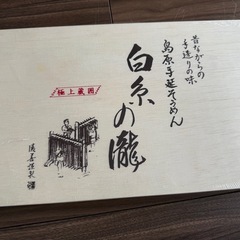 昔ながらの
手造りの味
島原手延そうめん
白糸の瀧
極上蔵囲